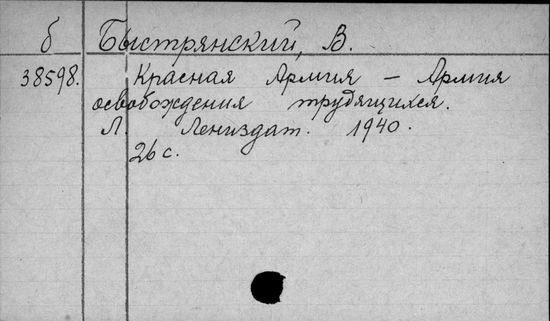 б Быстрянский, В.
38598. Красная Армия – Армия
освобождения трудящихся.
Л. Лениздат. 1940.
26 с.